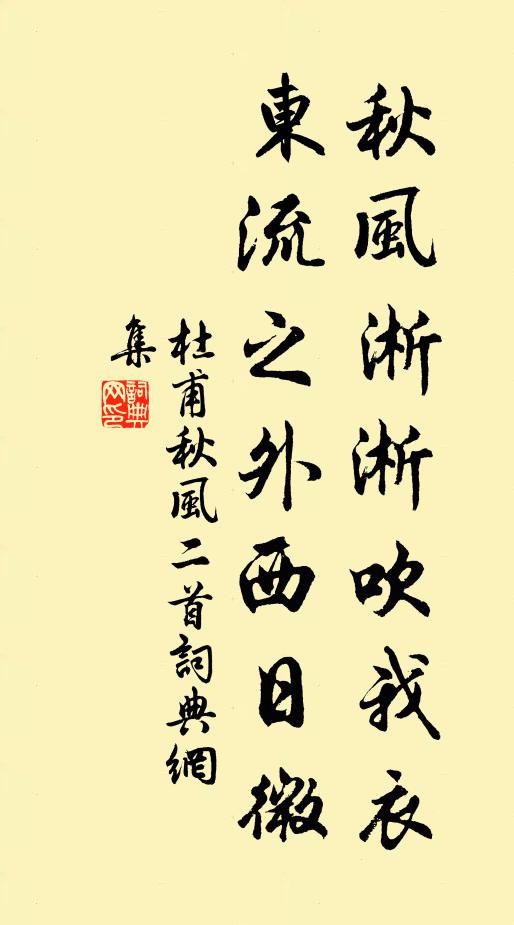 秋風淅淅吹我衣
東流之外西日微
杜甫秋風二首詞典網
集
詞典
网印